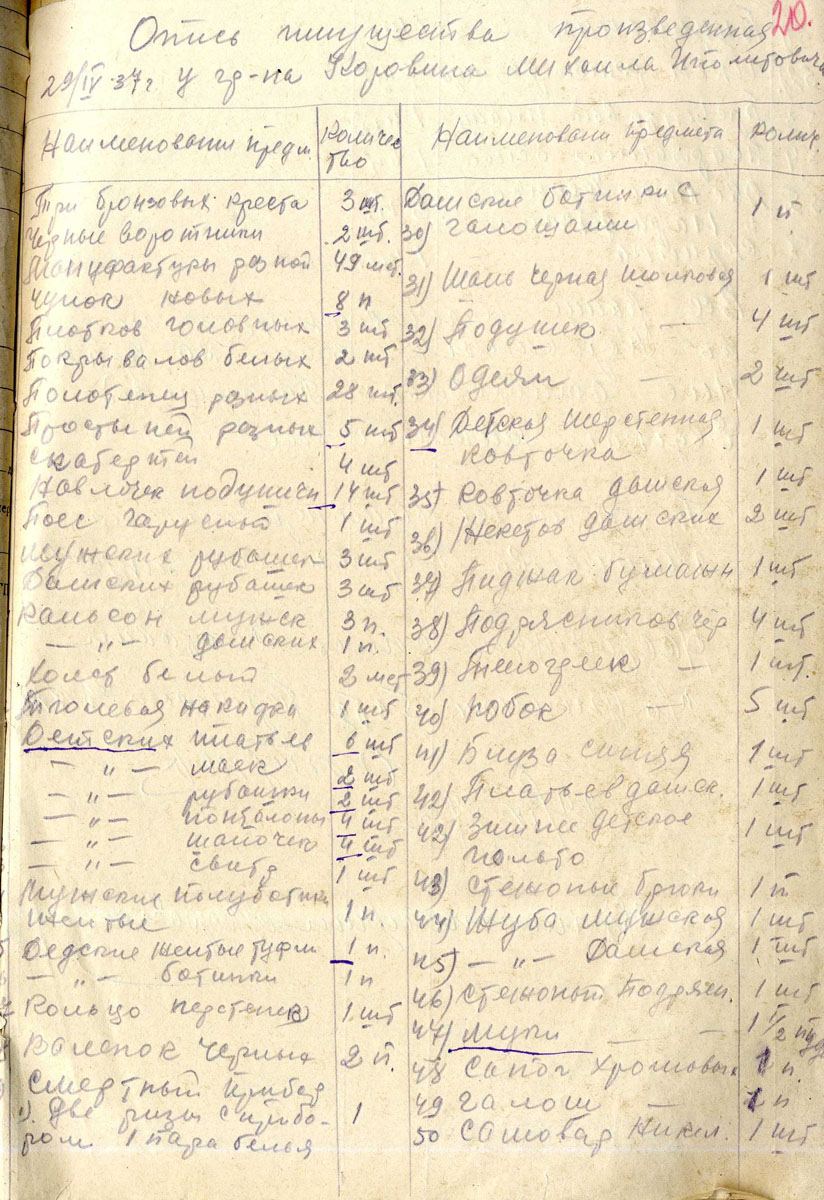 20.
Опись имущества произведенная
29/IV-37г у гр-на Коровина Михаила Иполитовича
Наименовани предм.
Количес
тво
Три бронзовых креста 3 шт.
Черные воротники 2 шт.
Мануфактуры разной 49 мет.
Чулок новых 8 п
Платков головных 3 шт
Покрывалов белых 2 шт
Полотенец разных 28 шт.
Простыней разных 5 шт
Скатертей 4 шт
Навлочек подушечн 14 шт
Поес гарусный 1 шт
Мужских рубашек 3 шт
Дамских рубашек 3 шт
Кальсон мужск 3 п.
— „ — дамских 1 п.
Холст белый 2 мет
Тюлевая накидка 1 шт
Детских платьев 6 шт
— „ — маек 2 шт
— „ — рубашки 2 шт
— „ — понталоны 4 шт
— „ — шапочек 4 шт
— „ — свитр 1 шт
Мужские полуботинки
желтые 1 п.
Дедские желтые туфли 1 п.
— „ — ботинки 1 п
Кольцо перстенек 1 шт
Валенок черных 2 п.
Смертный прибор
1). Две ризы с прибо- 1
ром 1 пара белья
Наименовани предмета
Колич.
Дамские ботинки с
30) галошами 1 п.
31) Шаль черная шолковая 1 шт
32) Подушек — 4 шт
33) Одеял — 2 шт
34) Детская шерстенная 1 шт
ковточка
35) Ковточка дамская 1 шт
36) Жекетов дамских 2 шт
37) Пиджак бумажн 1 шт
38) Подрясников чер 4 шт
39) Телогреек — 1 шт.
40) Юбок — 5 шт
41) Блуза синяя 1 шт
42) Платьев дамск. 1 шт
42) Зимнее детское 1 шт
польто
43) Стежоные брюки 1 п
44) Шуба мужская 1 шт
45) — „ — Дамская 1 шт
46) Стежоный подрясн. 1 шт
47) Муки — 1 1/2 пуд
48 Сапог хромовых 1 п.
49 Галош — 1 п
50 Самовар никел. 1 шт